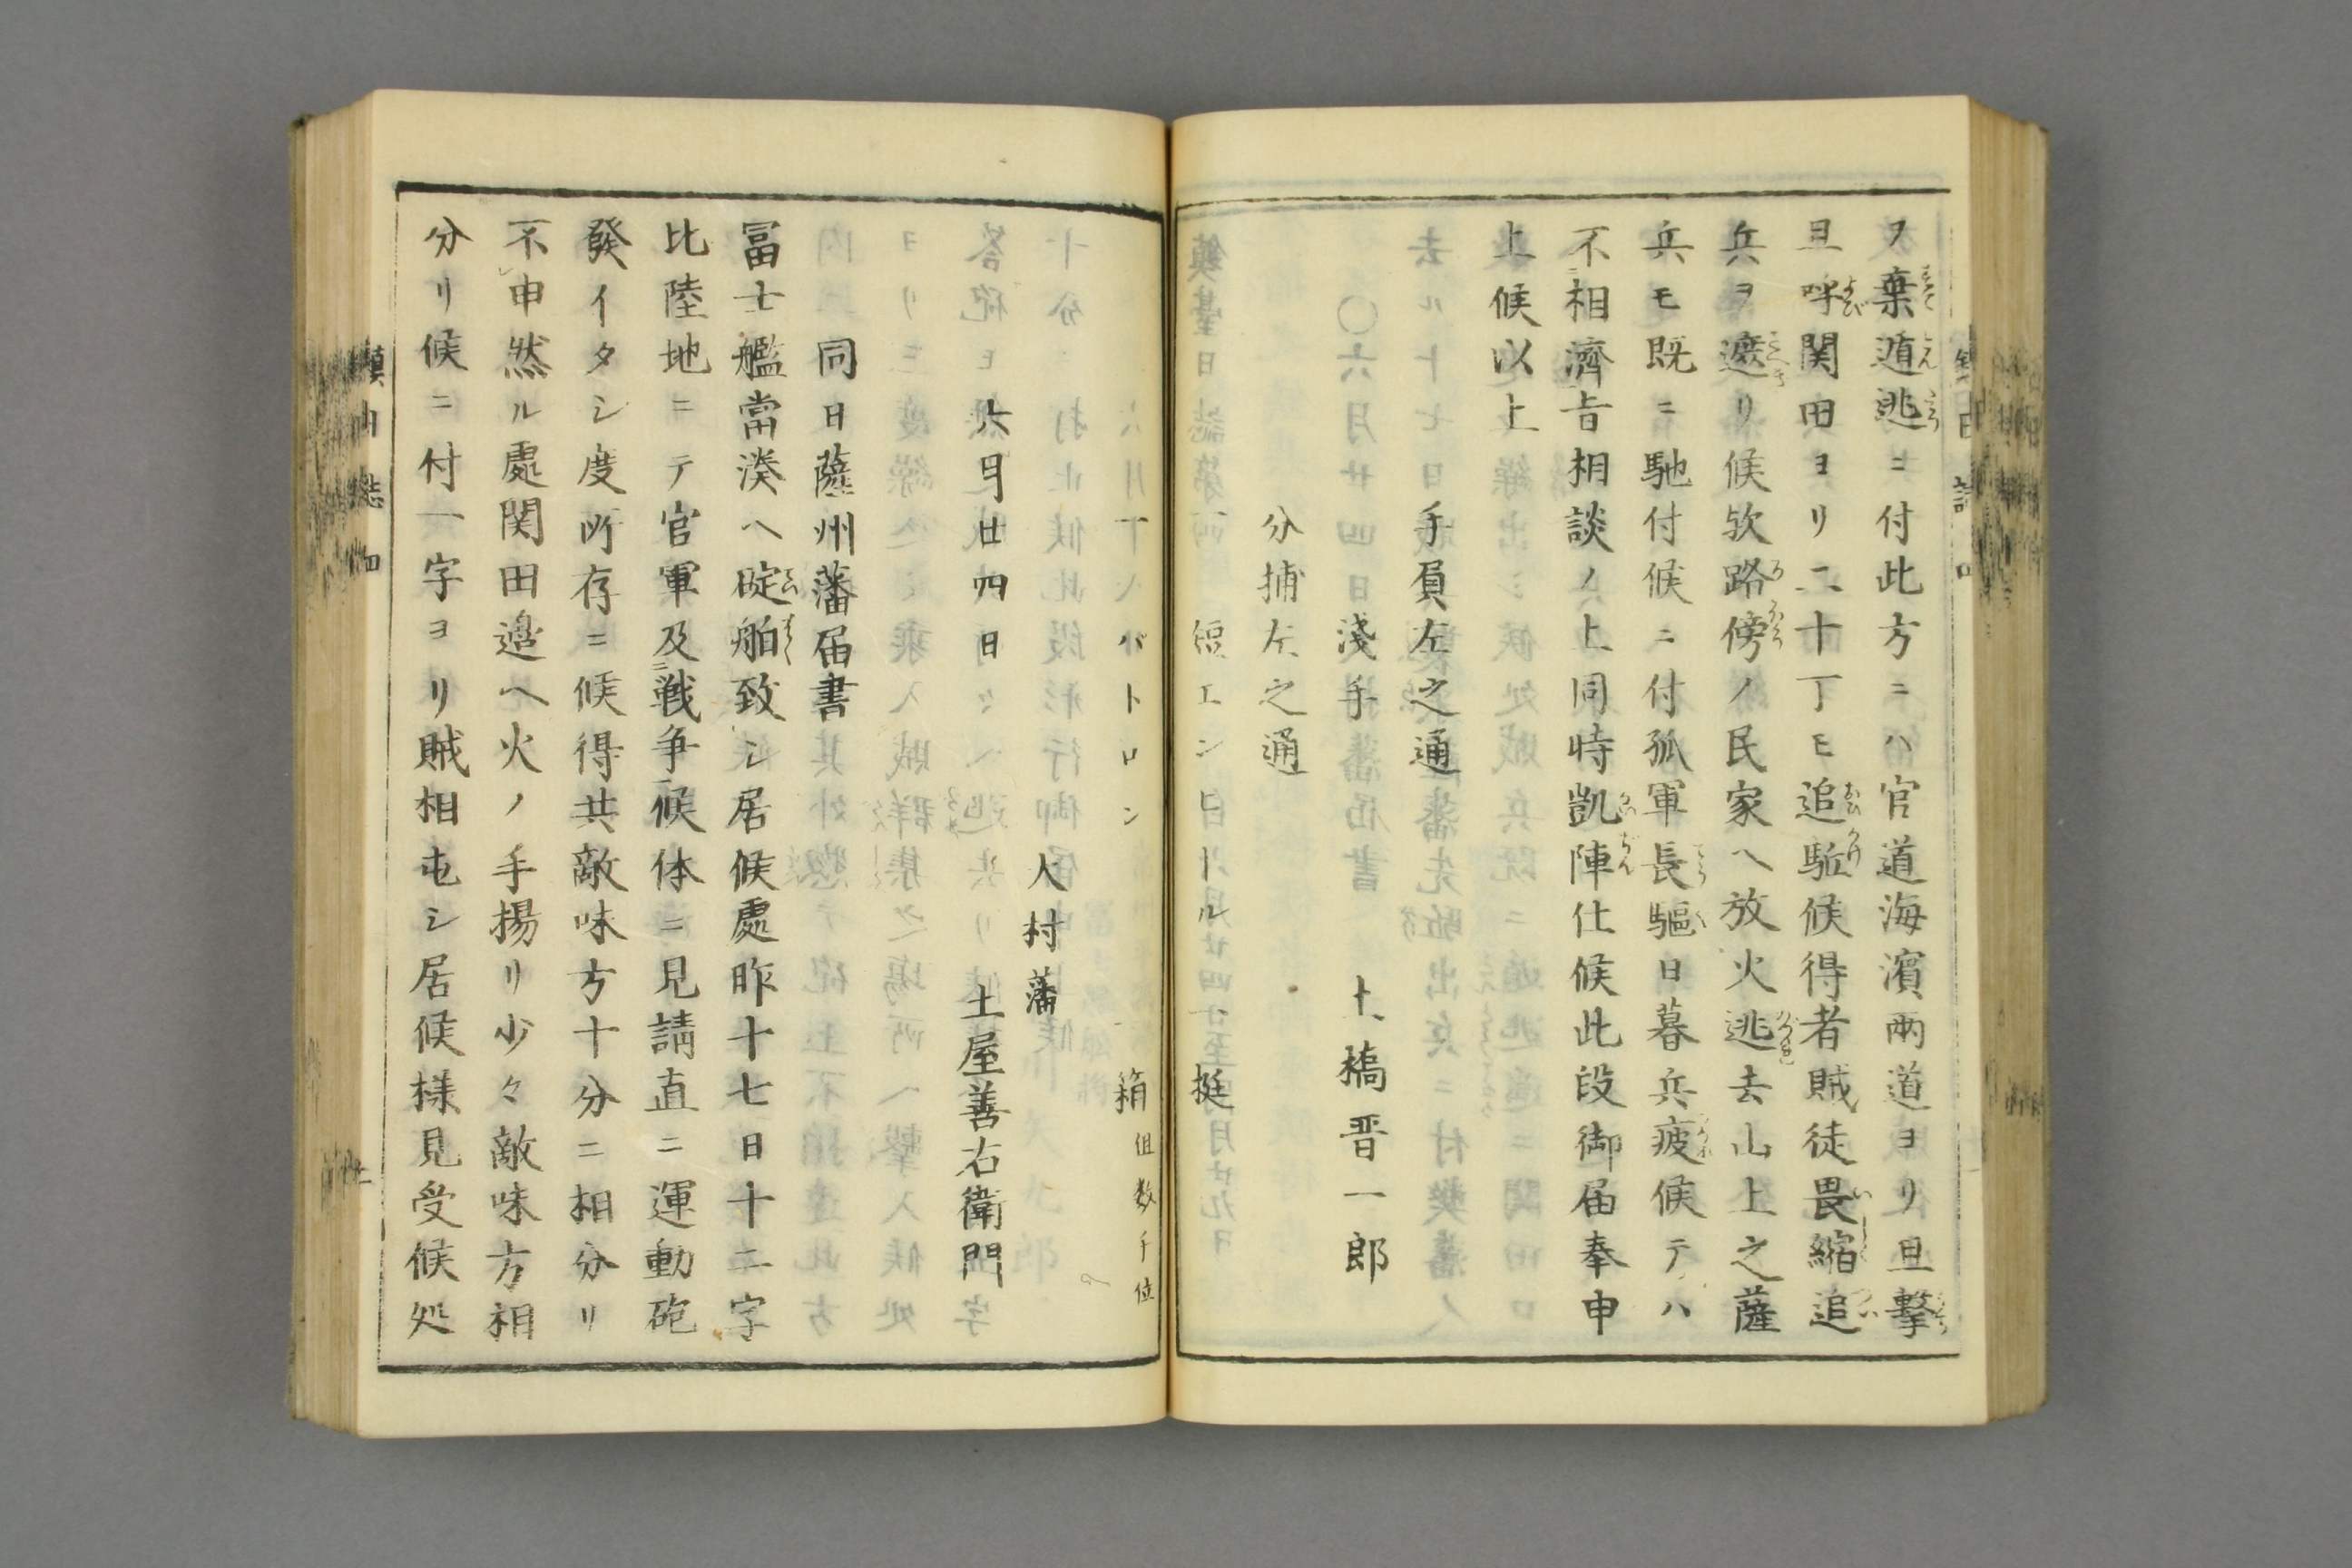 ヲ棄遁逃ニ付此方ニハ官道海濱兩道ヨリ且撃
且呼関田ヨリ二十丁モ追駈候得者賊徒畏縮追
兵ヲ遮リ候欤路傍ノ民家ヘ放火逃去山上之薩
兵モ既ニ馳付候ニ付孤軍長驅日暮兵疲候テハ
不相濟㫖相談ノ上同時凱陣仕候此段御届奉申
上候以上
手負左之通
淺手　十橋晋一郎
分捕左之通
短エンヒールル　挺
パトロン　箱 但数千位
大村藩
土屋善右衛門
六月廿四日
同日薩州藩届書
冨士艦當湊ヘ碇舶致シ居候處昨十七日十二字
比陸地ニテ官軍及戦争候体ニ見請直ニ運動砲
發イタシ度所存ニ候得共敵味方十分ニ相分リ
不申然ル處関田邉ヘ火ノ手揚リ少々敵味方相
分リ候ニ付一字ヨリ賊相屯シ居候様見受候処